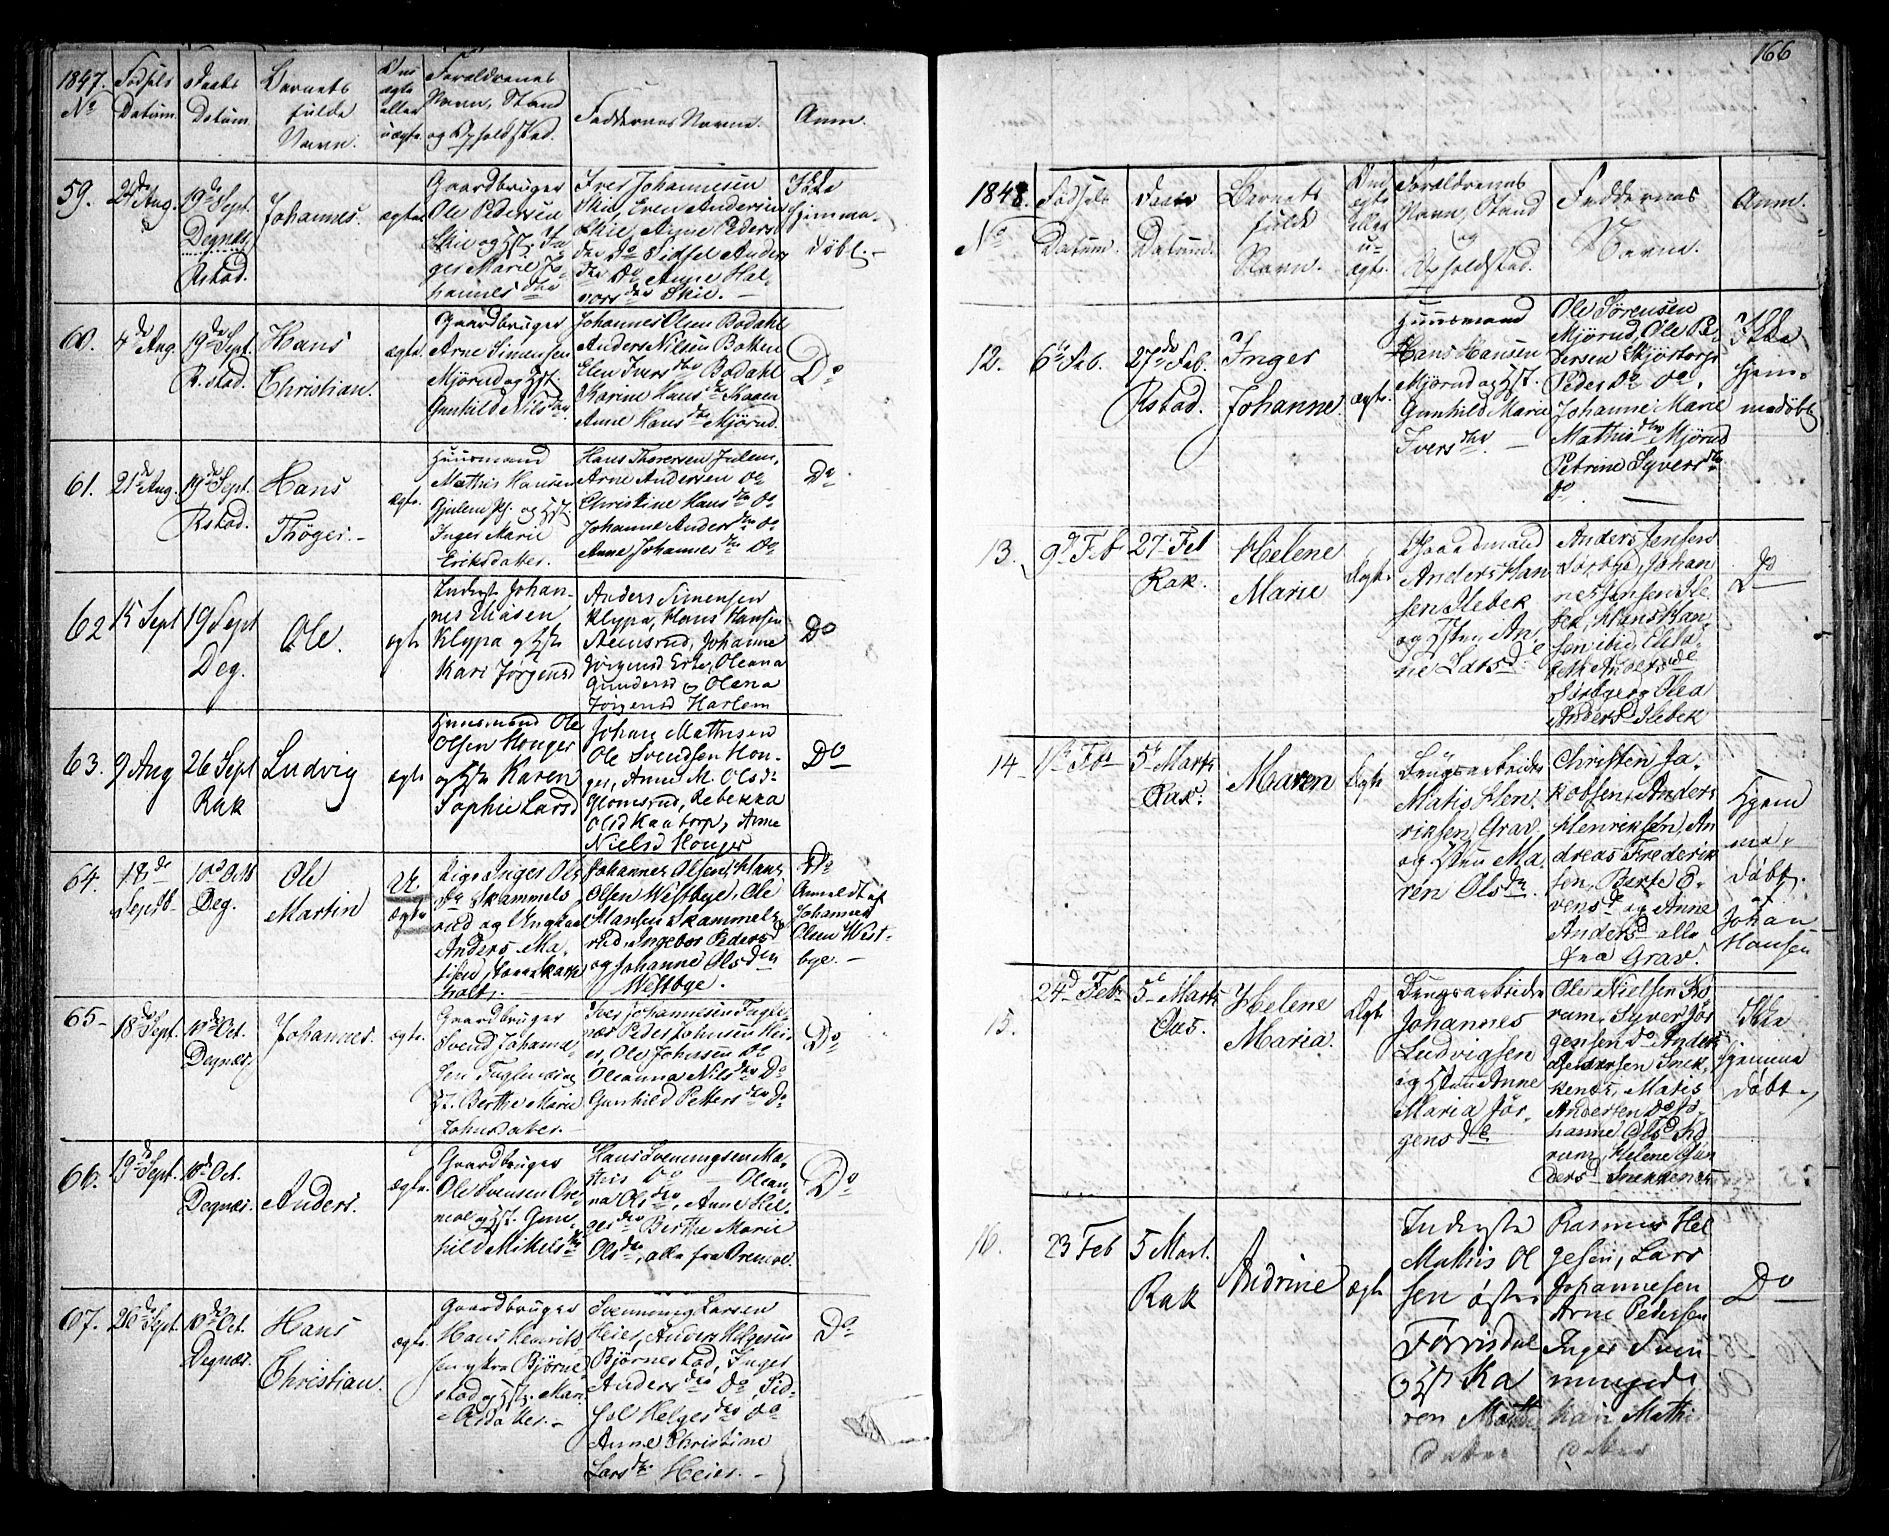 1847.
No
Fødsels
Datum.
Daabs
Datum.
Barnets
fulde
Navn.
Om
ægte
eller
uægte
Foraldrenes
Navn, Stand
og Opholdsted.
Faddernes Navne.
Anm.
59.
24de Aug.
19de Sept.
Degnæs
Rstad.
Johannes.
ægte
Gaardbruger
Ole Pedersen
Skie og Hst. In-
ger Marie Jo-
hannesdtr
Iver Johannesen
Skie, Even Andersen
Skie, Anne Peders
dtr Do Sidsel Anders
dtr Do Anne Hal-
vorsdtr Skie. —
Ikke
hjemme-
døbt. -
60.
4de Aug.
19de Sept.
R.stad.
Hans
Christian.
ægte
Gaardbruger
Arne Simensen
Mjørud og Hst.
Gunhild Nilsdtr
Johannes Olsen Bodahl
Anders Nilsen Botten
Elen Iversdtr Bodahl
Karine Hansdtr Kaaen
Anne Hansdtr Mjørud.
Do
61.
21de Aug.
19de Sept.
Rstad.
Hans
Thøger. -
ægte.
Huusmand
Mathis Hansen
Gjulem Pj. og Hst.
Inger Marie
Eriksdatter.
Hans Thoresen Julem,
Arne Andersen do
Christine Hansdtr do
Johanne Andersdtr do
Anne Johannesdtr Do
Do
62
15 Sept
19 Sept
Deg.
Ole.
ægte
Inderst Johan-
nes Eliasen
Klypa og Hste
Kari Jørgensd
Anders Simensen
Klypa, Hans Hansen
Aemsrud, Johanne
Jørgensd Erte, Oleana
Gundersd og Olena
Jørgensd Harlem
Do
63.
9 Aug
26 Sept
Rak
Ludvig
ægte
Huusmand Ole
Olsen Honger
og Hste Karen
Sophie Larsd
Johan Mathisen
Ole Svendsen Hon-
ger, Anne M. Olsd
Glomsrud, Rebekka
Olsd Kaatorp, Anne
Nielsd Honger
Do
64.
19de
Septb.
10de Octb
Deg.
Ole
Martin
U.
ægte
Pige Inger Ols
dtr Skammels
rud og Ungkarl
Anders Ma-
tisen,
holt.
Johannes Olsen, Hans
Olsen Westbye, Ole
Hansen Skammels
rud, Ingebor Pedersd
og Johanne Olsden
Westbye.
Do
Anmeldt af
Johannes
Olsen West-
bye. —
65-
18de Sept.
10de Oct.
Degnæs
Johannes.
ægte.
Gaardbruger
Svend Johanne-
sen Fuglenæs og
H. Berthe Marie
Johnsdatter. —
Iver Johannesen Fugle-
næs Peder Johnsen Hei-
er, Ole Johnsen Do
Oleanna Nilsdtr Do
Gunhild Pettersdtr Do
Do
66.
19de Sept.
10de Oct.
Degnæs.
Anders.
ægte.
Gaardbruger
Ole Svensen Ore-
moe og Hst. Gun-
hild Mikelsdtr
Hans Sveningsen Ma-
this Do — Olean-
na Olsdtr, Anne Hel-
gesdtr Berthe Marie
Olsdtr, alle fra Oremoe.
Do
67.
26de Sept.
10de Oct.
Degnæs.
Hans
Christian.
ægte.
Gaardbruger
Hans Henrik-
sen Bjørne-
stad og Hst. Mari
Svenning Larsen
Heier, Anders Helgesen
Bjørnestad, Inger
Andersdtr Do, Sid-
sel Helgesdtr do
Anne Christine
Larsdtr Heier. -
Do
166
1848.
No
Fødsels
Datum.
Daabs
Datum.
Barnets
fulde
Navn.
Om
ægte
eller
u-
ægte.
Foraldrenes
Navn, Stand
og
Opholdsted.
Faddernes
Navne.
Anm.
12.
6te Feb.
27de Feb.
Rstad.
Inger
Johanne
ægte.
Huusmand
Hans Hansen
Mjørud og Hst.
Gunhild Marie
Iversdtr. —
Ole Sørensen
Mjørud, Ole Pe-
dersen Skjørtorp
Peder do do.
Johanne Marie
Mathisdtr Mjørud
Petrine Syversdtr
do. —
Ikke
hjem-
medøbt
13.
9d Feb
27 Feb
Rak.
Helene
Marie
Ægte
Gaardmand
Anders Han
sen Slebek
og Hsten An-
ne Larsde
Anders Jensen
Sørbye, Johan
nes Jensen Sle-
bek, Hans Han-
sen ibid, Elisa-
beth Andersde
Sørbye og Olea
Andersd Slebek
Do
14
Feb
5te Marts
Aas.
Maren
Ægte
Brugsarbeider
Matis Hen-
riksen Grav
og Hsten Ma-
ren Olsdtr.
Christen Ja-
kobsen, Anders
Henriksen, An-
dreas Frederik
sen, Berte E-
vensd og Anne
Andersd alle
fra Grav.
Hjem
me-
døbt.
af
Johan
Hansen
15.
24d Feb.
5te Marts
Aas.
Helene
Maria.
Ægte
Brugsarbeider
Johannes
Ludvigsen
og Hsten Anne
Maria Jør-
gensde
Ole Nielsen Ko-
ram, Syver Jør-
gensen do Anders
Andersen Snek-
kenæs, Matis
Andersen do, Jo-
hanne Olsd Ko-
ram, Helene Gun
dersd Snekkenæs
Ikke
hjemme
døbt. -
16.
23 Feb
5 Mart.
Rak
Andrine
Ægte
Inderste
Mathis Ol
sen østre
Førrisdal
og Hst Ka
ren Math
datter
Rasmus Hel
gesen, Lars
Johannesen
Arne Pedersen
Inger Sven
ningsd
Kari Mathis
datter
Do